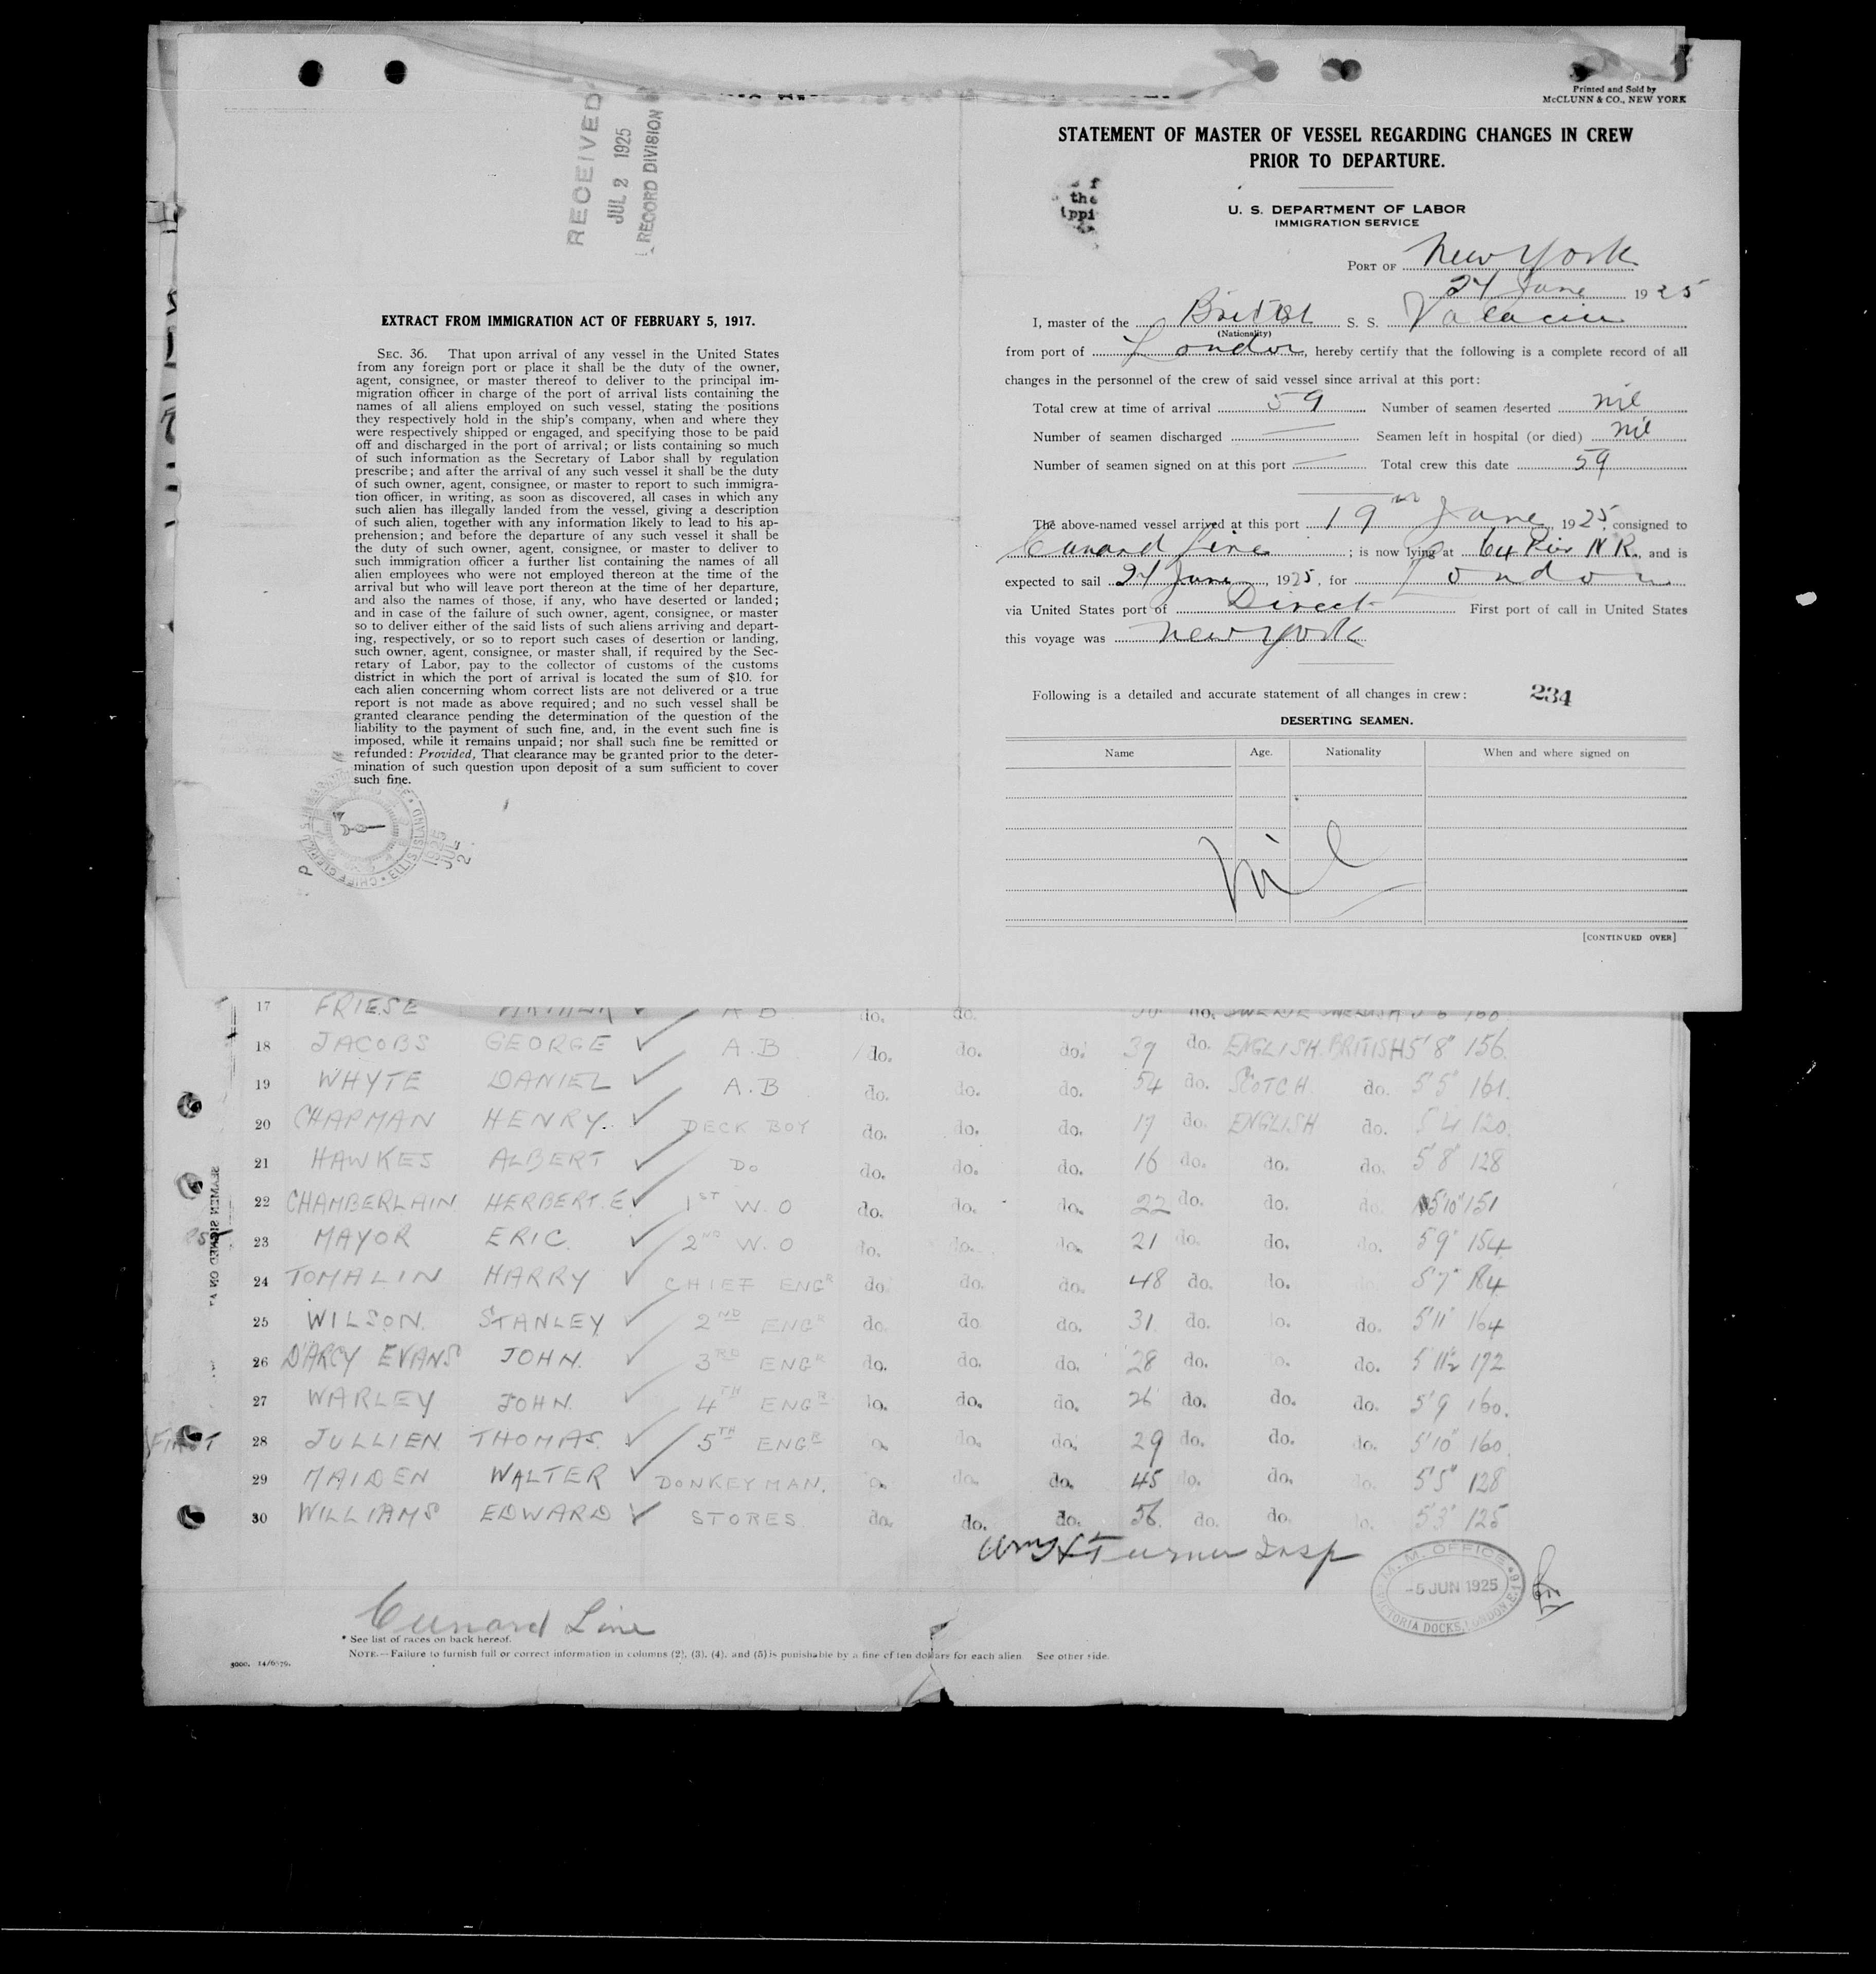 RECEIVED
JUL 2 1925
RECORD DIVISION
EXTRACT FROM IMMIGRATION ACT OF FEBRUARY 5, 1917.
SEC. 36. That upon arrival of any vessel in the United States
from any foreign port or place it shall be the duty of the owner,
agent, consignee, or master thereof to deliver to the principal im-
migration officer in charge of the port of arrival lists containing the
names of all aliens employed on such vessel, stating the positions
they respectively hold in the ship's company, when and where they
were respectively shipped or engaged, and specifying those to be paid
off and discharged in the port of arrival; or lists containing so much
of such information as the Secretary of Labor shall by regulation
prescribe; and after the arrival of any such vessel it shall be the duty
of such owner, agent, consignee, or master to report to such immigra-
tion officer, in writing, as soon as discovered, all cases in which any
such alien has illegally landed from the vessel, giving a description
of such alien, together with any information likely to lead to his ap-
prehension; and before the departure of any such vessel it shall be
the duty of such owner, agent, consignee, or master to deliver to
such immigration officer a further list containing the names of all
alien employees who were not employed thereon at the time of the
arrival but who will leave port thereon at the time of her departure,
and also the names of those, if any, who have deserted or landed;
and in case of the failure of such owner, agent, consignee, or master
so to deliver either of the said lists of such aliens arriving and depart-
ing, respectively, or so to report such cases of desertion or landing,
such owner, agent, consignee, or master shall, if required by the Sec-
retary of Labor, pay to the collector of customs of the customs
district in which the port of arrival is located the sum of $10. for
each alien concerning whom correct lists are not delivered or a true
report is not made as above required; and no such vessel shall be
granted clearance pending the determination of the question of the
liability to the payment of such fine, and, in the event such fine is
imposed, while it remains unpaid; nor shall such fine be remitted or
refunded: Provided, That clearance may be granted prior to the deter-
mination of such question upon deposit of a sum sufficient to cover
such fine.
CHIEF CLERK ELLIS ISLAND
1925 JUL 2
Printed and Sold by
McCLUNN & CO., NEW YORK
STATEMENT OF MASTER OF VESSEL REGARDING CHANGES IN CREW
PRIOR TO DEPARTURE.
the
U. S. DEPARTMENT OF LABOR
IMMIGRATION SERVICE
PORT OF New York
27 June 1925
I, master of the British S. S. Valacia
(Nationality)
from port of London, hereby certify that the following is a complete record of all
changes in the personnel of the crew of said vessel since arrival at this port:
Total crew at time of arrival 59 Number of seamen deserted nil
Number of seamen discharged — Seamen left in hospital (or died) nil
Number of seamen signed on at this port — Total crew this date 59
The above-named vessel arrived at this port 19th June, 1925, consigned to
Cunard Line; is now lying at 64 Pier N R., and is
expected to sail 27 June, 1925, for London
via United States port of Direct First port of call in United States
this voyage was New York
Following is a detailed and accurate statement of all changes in crew: 234
DESERTING SEAMEN.
Name Age. Nationality When and where signed on
Nil
[CONTINUED OVER]
17 FRIESE A B do. do.
18 JACOBS GEORGE A.B do. do. do. 39 do. ENGLISH. BRITISH 5'8" 156.
19 WHYTE DANIEL A.B do. do. do. 54 do. SCOTCH. do. 5'5" 161.
20 CHAPMAN HENRY. DECK BOY do. do. do. 17 do. ENGLISH do. 5'4 120.
21 HAWKES ALBERT Do do. do. do. 16 do. do. do. 5'8" 128
22 CHAMBERLAIN HERBERT. E 1ST W. O do. do. do. 22 do. do. do. 5'10" 151
23 MAYOR ERIC. 2ND W. O do. do. do. 21 do. do. 5'9" 154
24 TOMALIN HARRY CHIEF ENGR do. do. do. 48 do. do. 5'7" 184
25 WILSON. STANLEY 2ND ENGR do. do. do. 31. do. do. do. 5'11" 164
26 D'ARCY EVANS JOHN. 3RD ENGR do. do. do. 28 do. do. do. 5'11½ 172
27 WARLEY JOHN. 4TH ENGR do. do. do. 26 do. do. do. 5'9 160.
28 JULLIEN THOMAS. 5TH ENGR do. do. do. 29 do. do. do. 5'10" 160.
29 MAIDEN WALTER DONKEYMAN. do. do. do. 45 do. do. do. 5'5" 128
30 WILLIAMS EDWARD STORES do. do. do. 56. do. do. do. 5'3" 125
Wm H Turner Insp
M. M. OFFICE
-5 JUN 1925
VICTORIA DOCKS, LONDON, E.16
Cunard Line
* See list of races on back hereof.
NOTE.—Failure to furnish full or correct information in columns (2), (3), (4), and (5) is punishable by a fine of ten dollars for each alien See other side.
SEAMEN SIGNED ON AT